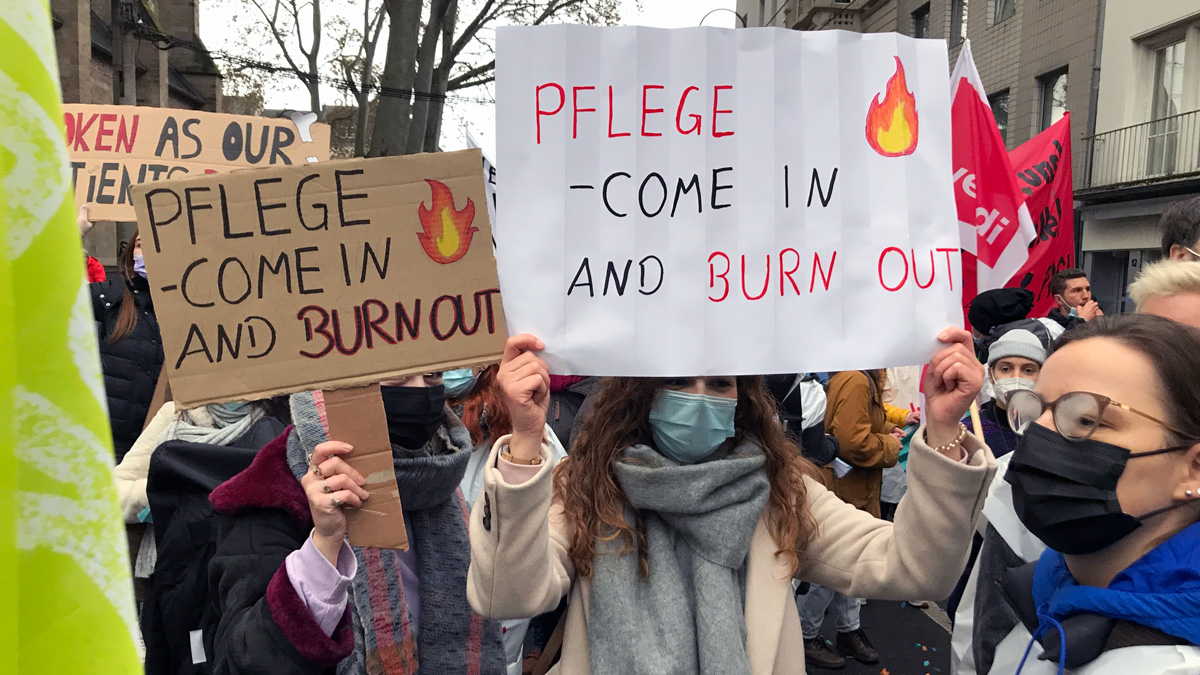 OKEN AS OUR
TIENTS
PFLEGE
-COME IN
AND BURN OUT
PFLEGE
-COME IN
AND BURN OUT
ver
di